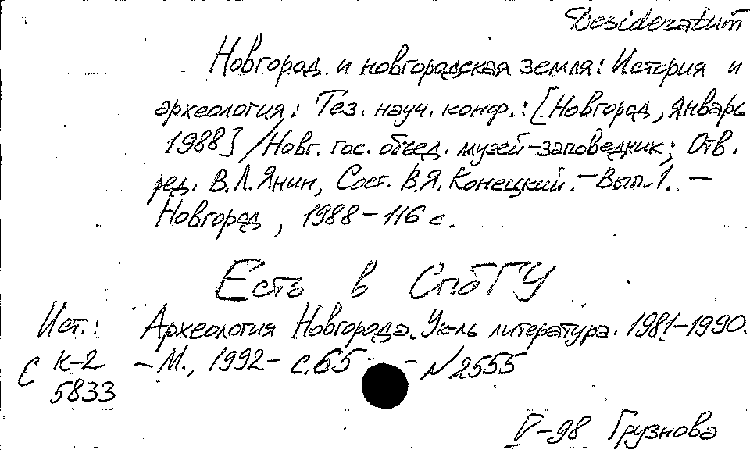 Desideratum
Новгород и новгородская земля: История и
археология: Тез. науч. конф.: [Новгород, январь
1988] / Новг. гос. объед. музей-заповедник; Отв.
ред. В.Л. Янин, Сост. В.Я. Конецкий. – Вып. 1. –
Новгород, 1988 – 116 с.
Есть в СПбГУ
Ист.: Археология Новгорода. Указ. литература. 1981–1990.
– М., 1992 – с. 65 – № 2555
С К-2
5833
V–98 Грузнова